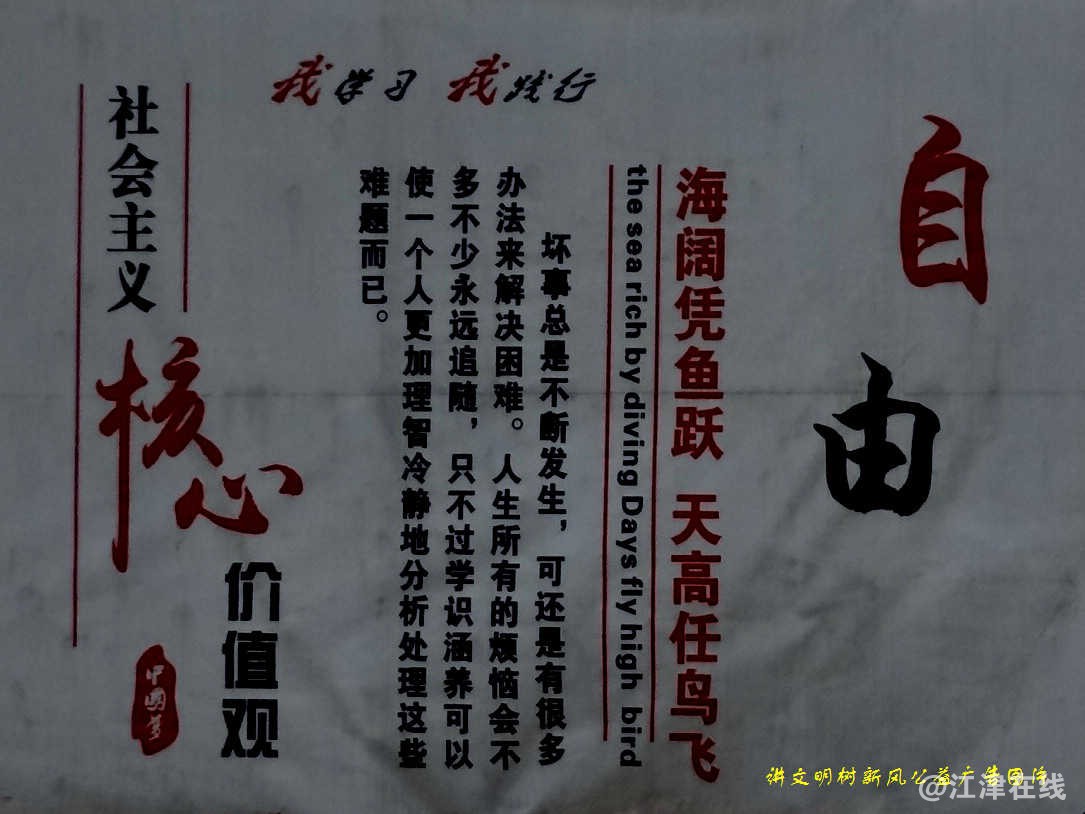 我学习 我践行
自由
海阔凭鱼跃 天高任鸟飞
the sea rich by diving Days fly high bird
坏事总是不断发生，可还是有很多
办法来解决困难。人生所有的烦恼会不
多不少永远追随，只不过学识涵养可以
使一个人更加理智冷静地分析处理这些
难题而已。
社会主义
核心
价值观
中國夢
讲文明树新风公益广告图片
@江津在线